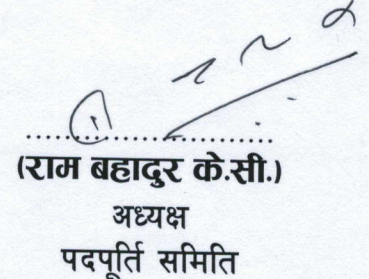 ..............................
(राम बहादुर के.सी.)
अध्यक्ष
पदपूर्ति समिति